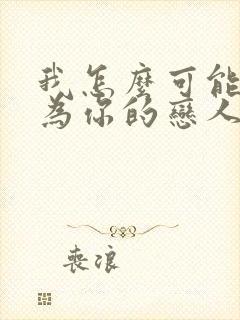 我怎麼可能
為你的戀人
喪浪